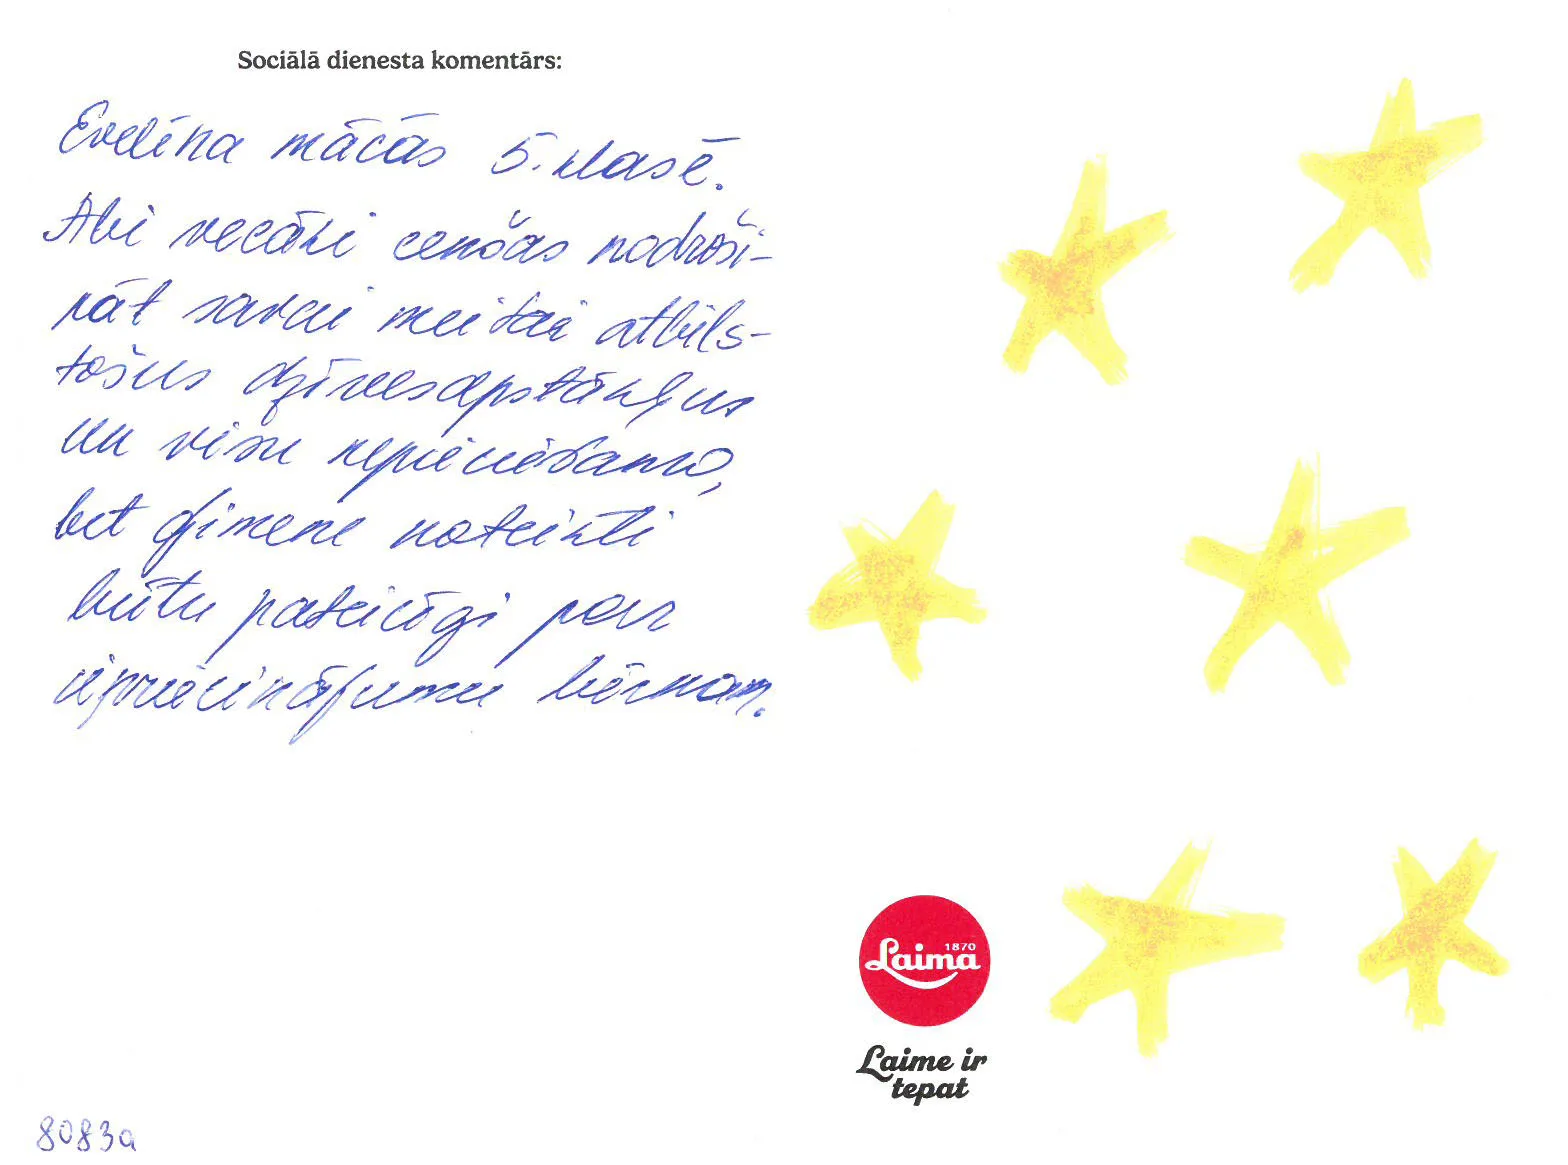 Sociālā dienesta komentārs:
Evelīna mācās 5. klasē.
Abi vecāki cenšas nodroši-
nāt savai meitai atbils-
tošus dzīvesapstākļus
un visu nepieciešamo,
bet ģimene noteikti
būtu pateicīgi par
iepriecinājumu bērnam.
1870
Laima
Laime ir
tepat
8083a